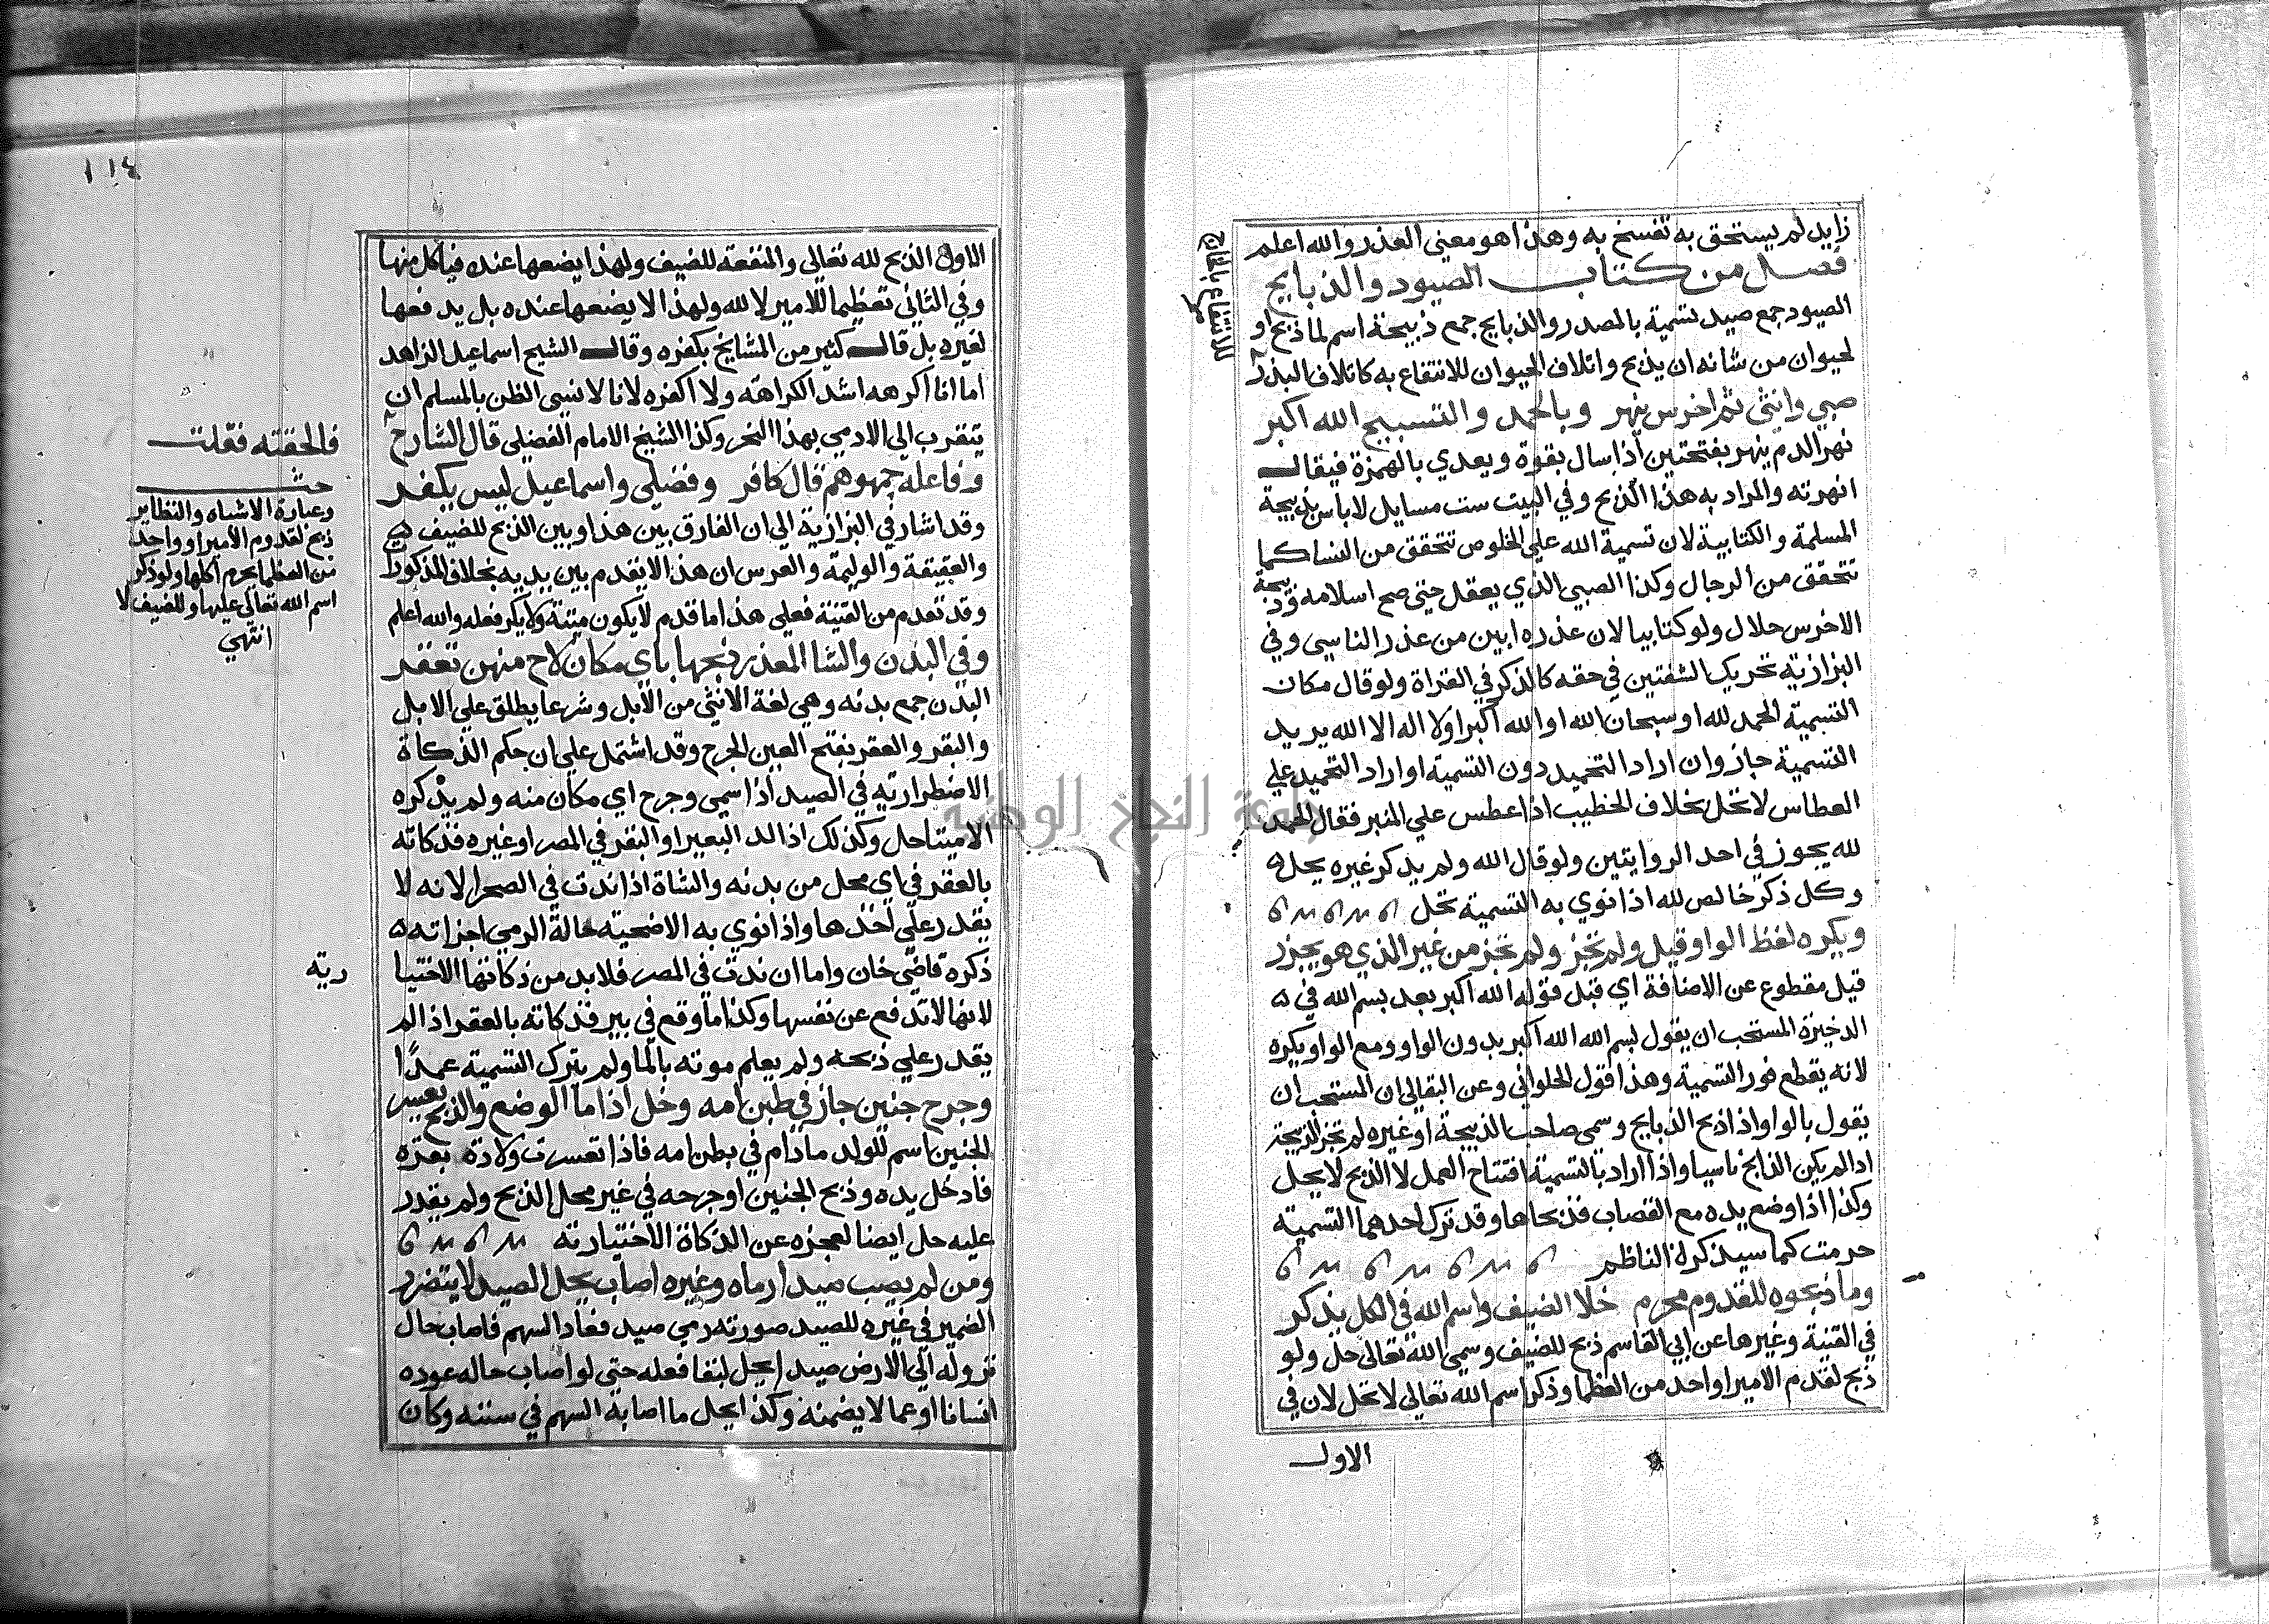 زايد لم يستحق به تفسخ به وهذا هو معني العذر والله اعلم
فصل من كتاب الصيود والذبايح
الصيود جمع صيد تسمية بالمصدر والذبايح جمع ذبيحة اسم لما ذبح او
لحيوان من شانه ان يذبح واتلاف الحيوان للانتفاع به كاتلاف البذر
للانتفاع بالخارج
صح
صبي وانثي ثم اخرس ينهر وبالحمد والتسبيح الله اكبر
نهر الدم ينهر بفتحتين اذا سال بقوة ويعدي بالهمزة فيقال
انهرته والمراد به هذا الذبح وفي البيت ست مسايل لاباس بذبيحة
المسلمة والكتابية لان تسمية الله علي الخلوص تتحقق من النسا كما
تتحقق من الرجال وكذا الصبي الذي يعقل حتي صح اسلامه وذبيحة
الاخرس حلال ولو كتابيا لان عذره ابين من عذر الناسي وفي
البزازية تحريك الشفتين في حقه كالذكر في القراة ولو قال مكان
التسمية الحمد لله او سبحان الله او الله اكبر او لا اله الا الله يريد
التسمية جاز وان اراد التحميد دون التسمية او اراد التحميد علي
العطاس لا تحل بخلاف الخطيب اذا عطس علي المنبر فقال الحمد
لله يجوز في احد الروايتين ولو قال الله ولم يذكر غيره يحل
وكل ذكر خالص لله اذا نوي به التسمية تحل
ويكره لفظ الواو قيل ولم تجز ولم تجز من غير الذي هو يجزر
قيل مقطوع عن الاضافة اي قبل قوله الله اكبر بعد بسم الله في
الدخيرة المستحب ان يقول بسم الله الله اكبر بدون الواو ومع الواو يكره
لانه يقطع فور التسمية وهذا قول الحلواني وعن البقالي ان المستحب ان
يقول بالواو اذا ذبح الذبايح وسمي صاحب الذبيحة او غيره لم تجز الذبيحة
اذا لم يكن الذابح ناسيا واذا اراد بالتسمية افتتاح العمل لا الذبح لا يحل
وكذا اذا وضع يده مع القصاب فذبحاها وقد ترك احدهما التسمية
حرمت كما سيذكره الناظم
وما ذبحوه للقدوم محرم خلا الضيف واسم الله في الكل يذكر
في القنية وغيرها عن ابي القاسم ذبح للضيف وسمي الله تعالي حل ولو
ذبح لقدم الامير او احد من العظما وذكر اسم الله تعالي لا تحل لان في
الاول
١١٤
الاول الذبح لله تعالي والمنفعة للضيف ولهذا يضعها عنده فياكل منها
وفي الثاني تعظيما للامير لا لله ولهذا لا يضعها عنده بل يدفعها
لغيره بل قال كثير من المشايخ بكفره وقال الشيخ اسماعيل الزاهد
اما انا اكرهه اشد الكراهة ولا اكفره لانا لا نسي الظن بالمسلم ان
يتقرب الي الادمي بهذا النحر وكذا الشيخ الامام الفضلي قال الشارح
فالحقته فقلت
وفاعله جمهورهم قال كافر وفضلي واسماعيل ليس يكفر
وقد اشار في البزازية الي ان الفارق بين هذا وبين الذبح للضيف
والعقيقة والوليمة والعرس ان هذا لا يقدم بين يديه بخلاف المذكور
وقد تقدم من القنية فعلي هذا ما قدم لا يكون ميتة ولا يكر فعله والله اعلم
وعبارة الاشباه والنظاير
ذبح لقدوم الامير او واحد
من العظما يحرم اكلها ولو ذكر
اسم الله تعالي عليها وللضيف لا
انتهي
وفي البدن والشا المعذر ذبحها باي مكان لاح منهن تعقر
البدن جمع بدنه وهي لغة الانثي من الابل وشرعا يطلق علي الابل
والبقر والعقر بفتح العين الجرح وقد اشتمل علي ان حكم الذكاة
الاضطرارية في الصيد اذا سمي وجرح اي مكان منه ولم يذكره
الا ميتا حل وكذلك اذا ند البعير او البقر في المصر او غيره فذكاته
بالعقر في اي محل من بدنه والشاة اذا ندت في الصحرا لانه لا
يقدر علي اخذها واذا نوي به الاضحية حالة الرمي اجزاته
ذكره قاضي خان واما ان ندت في المصر فلا بد من ذكاتها الاختيا
رية
لانها لا تدفع عن نفسها وكذا ما وقع في بير فذكاته بالعقر اذا لم
يقدر علي ذبحه ولم يعلم موته بالما ولم يترك التسمية عمدًا
وجرح جنين جاز في بطن امه وحل اذا ما الوضع والذبح يعسر
الجنين اسم للولد ما دام في بطن امه فاذا تعسرت ولادة بقره
فادخل يده وذبح الجنين او جرحه في غير محل الذبح ولم يقدر
عليه حل ايضا لعجزه عن الذكاة الاختيارية
ومن لم يصب صيدا رماه وغيره اصاب يحل الصيد لا يتضرر
الضمير في غيره للصيد صورته رمي صيد فعاد السهم فاصاب حال
نزوله الي الارض صيدا يحل لبقا فعله حتي لو اصاب حاله عوده
انسانا او عما لا يضمنه وكذا يحل ما اصابه السهم في سننه وكان
جامعة النجاح الوطنية